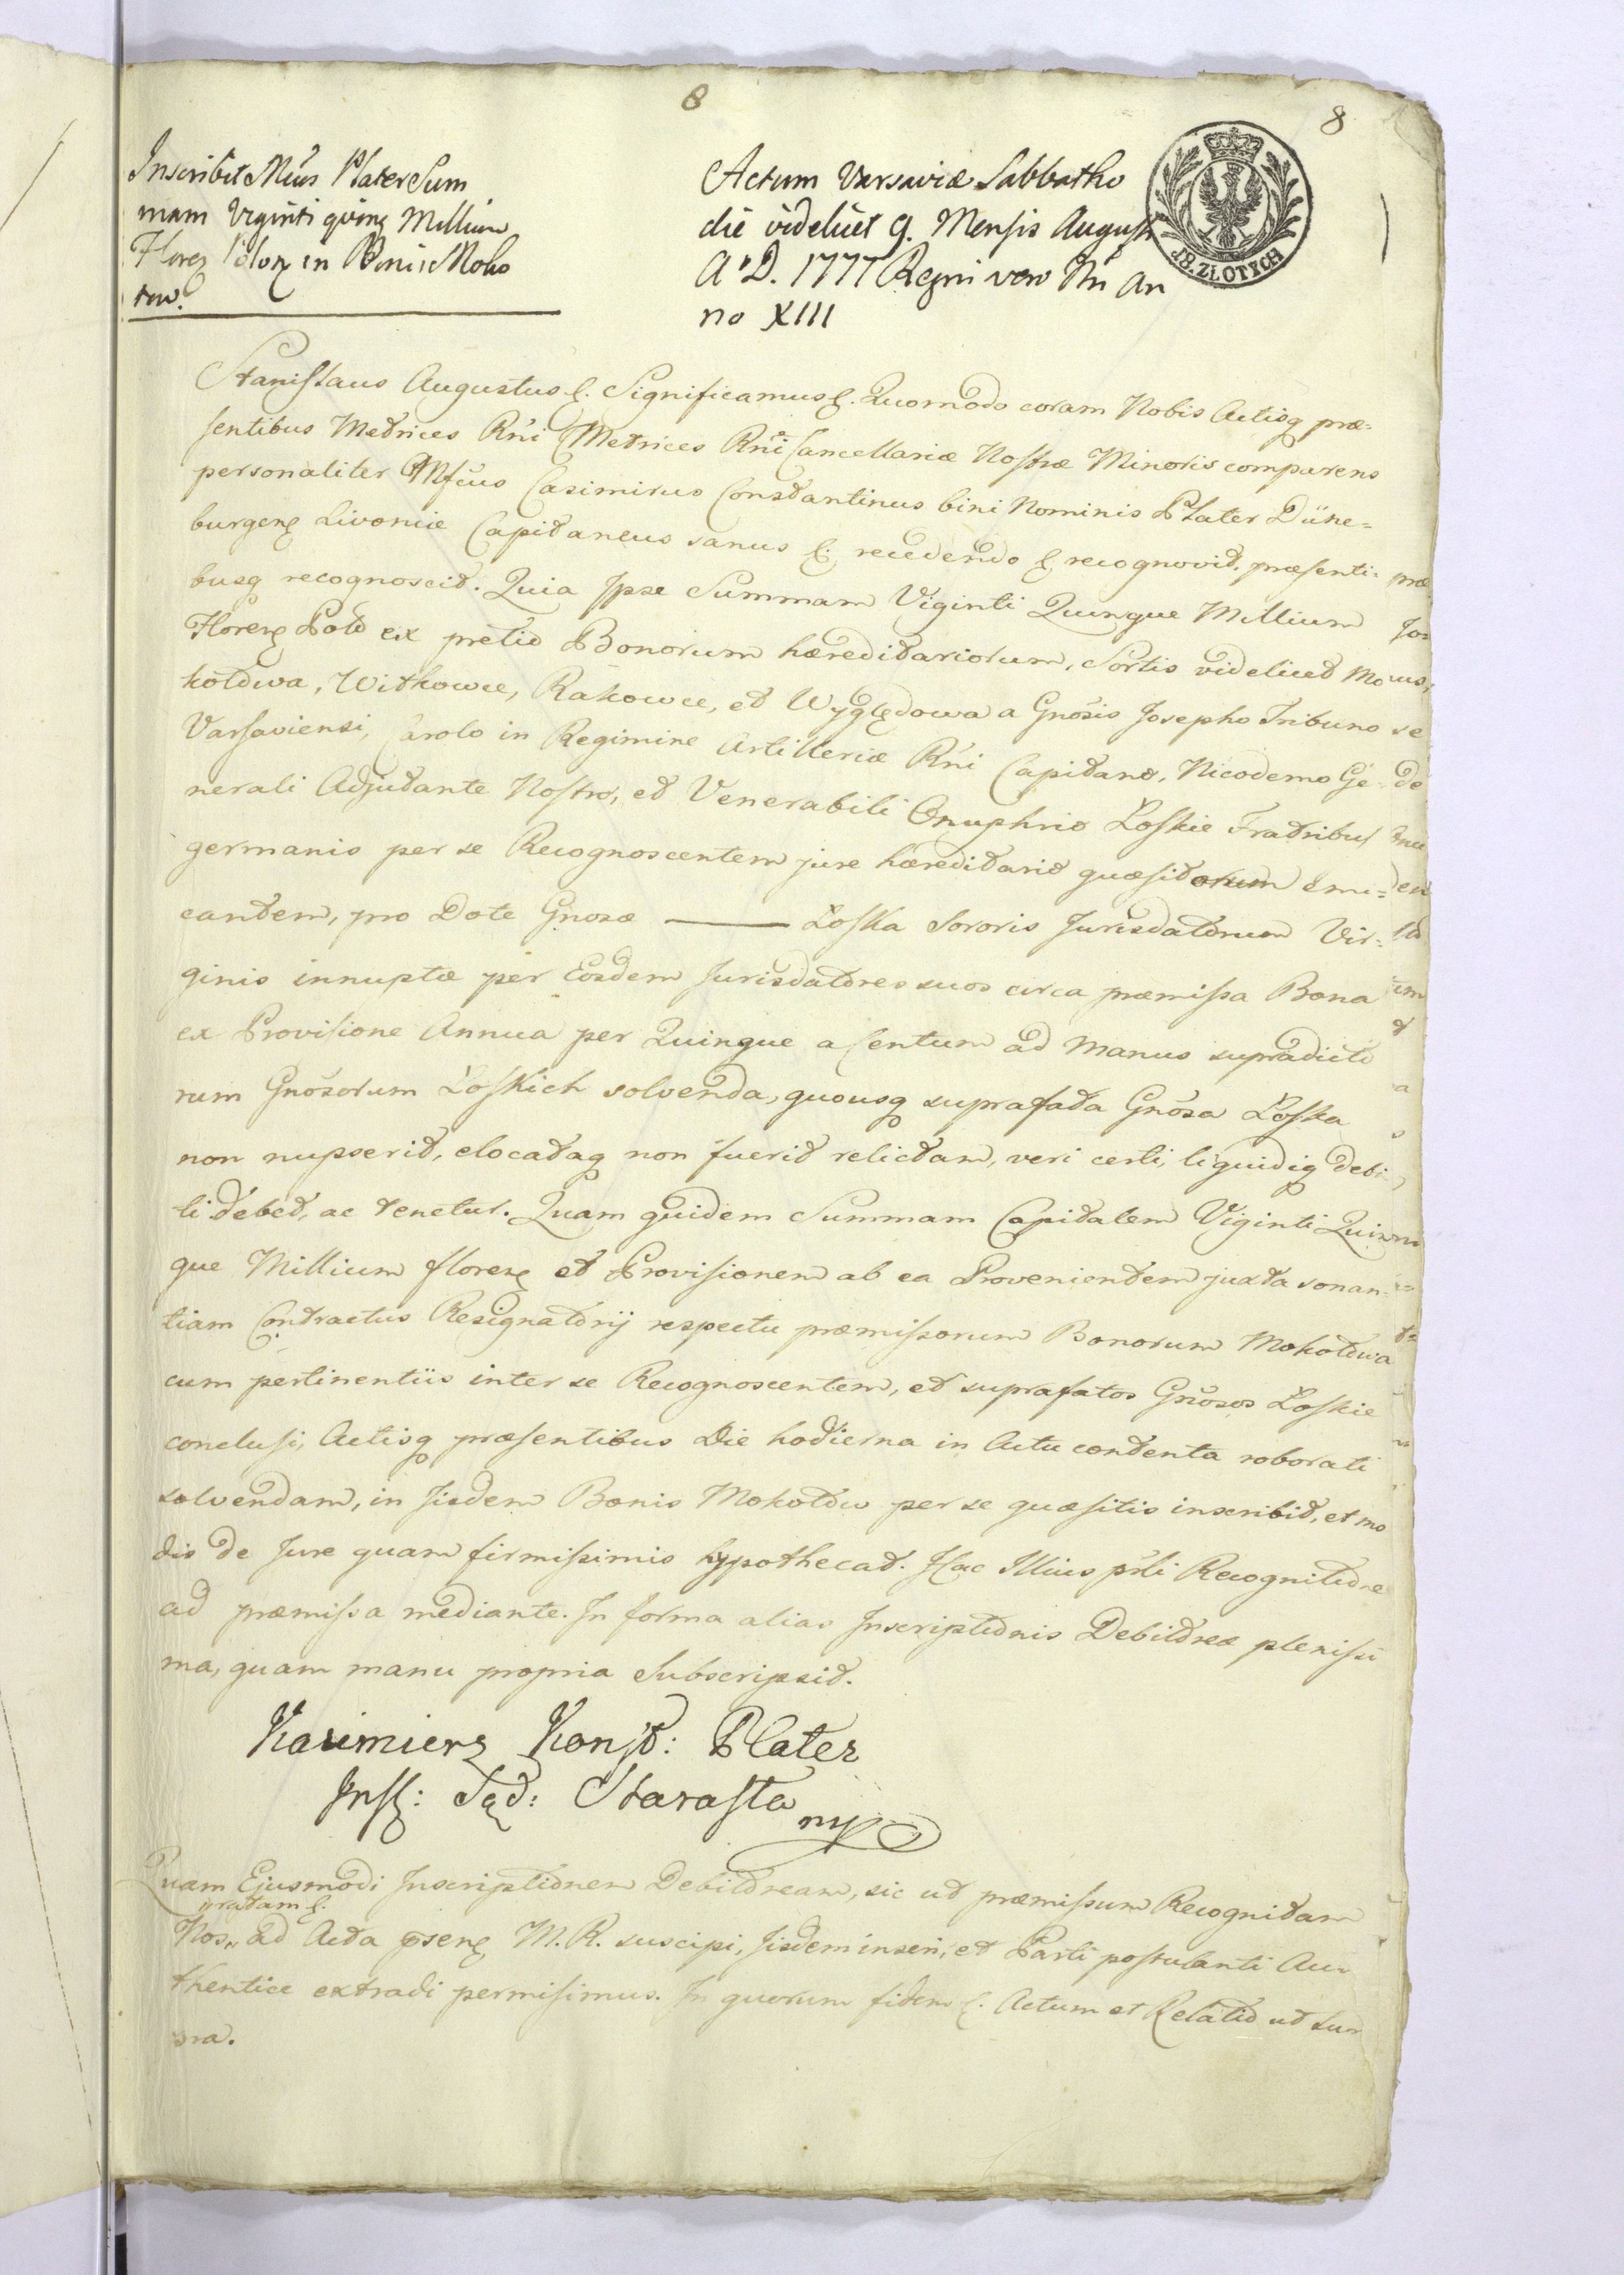 8
8
Inscribit Mcus Plater Sum
mam Viginti qvinq Millium
Floreg Polon in Bonis Moko
tow.
Actum Varsaviæ Sabbatho
die videlicet 9. Mensis Augusti
A. D. 1777 Regni vero Nri An
no XIII
18. ZŁOTYCH
Stanislaus Augustus &. Significamus &. Quomodo coram Nobis Actisq præ=
sentibus Metrices Rni Metrices Rni Cancellariæ Nostræ Minoris comparens
personaliter Mfcus Casimirus Constantinus bini Nominis Plater Düne=
burgens Livoniæ Capitaneus sanus &. recedendo & recognovit. præsenti=
busq recognoscit. Quia Ipse Summam Viginti Quinque Millium
Floreng Pold ex pretio Bonorum hæreditariorum, Sortis videlicet Mo
kotowa, Witkowce, Rakowce, et Wyględowa a Gnosis Josepho Tribuno
Varsaviensi, Carolo in Regimine Artilleriæ Rni Capitano, Nicodemo Ge=
nerali Adjutante Nostro, et Venerabili Onuphrio Łoskie Fratribus
germanis per se Recognoscentem jure hæreditario quæsitorum Emi=
cantem, pro Dote Gnosæ ——— Łoska Sororis Jurisdatorum Vir=
ginis innuptæ per Eosdem Jurisdatores suos circa præmissa Bona
ex Provisione Annua per Quinque a Centum ad manus supradicto
rum Gnosorum Łoskich solvenda, quousq suprafata Gnosa Łoska
non nupserit, elocataq non fuerit relictam, veri certi, liquidiq debi
ti debet, ac tenetur. Quam quidem Summam Capitalem Viginti Quin
que Millium floreng et Provisionem ab ea Provenientem juxta sonan=
tiam Contractus Resignatorij respectu præmissorum Bonorum Mokotowa
cum pertinentiis inter se Recognoscentem, et suprafatos Gnosos Łoskie
conclusi, Actisq præsentibus Die hodierna in Actu contenta roborati
solvendam, in Jisdem Bonis Mokotow per se quæsitis inscribit, et mo
dis de Jure quam firmissimis hypothecat. Hac Illius prli Recognitione
ad præmissa mediante. In forma alias Inscriptionis Debitoreæ plenissi
ma, quam manu propria Subscripsit.
Kazimierz Konst: Plater
Infl: Sąd: Starosta
mp
Quam Ejusmodi Inscriptionem Debitoream, sic ut præmissum Recognitam
ratam &.
Nos,, ad Acta psens M. R. suscipi, Jisdem inseri, et Parti postulanti Au=
thentice extradi permisimus. In quorum fidem &. Actum et Relatio ut Su
pra.